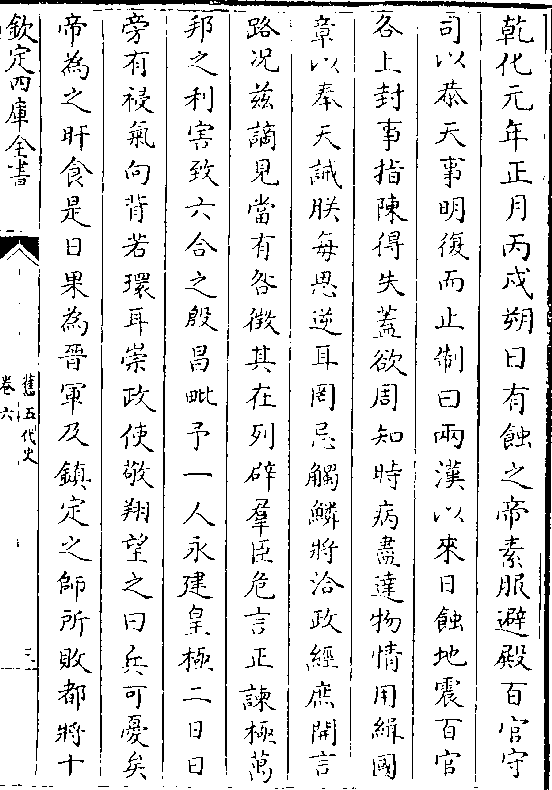 乾化元年正月丙戌朔日有蝕之帝素服避殿百官守
司以恭天事明復而止制曰兩漢以來日蝕地震百官
各上封事指陳得失蓋欲周知時病盡達物情用緝國
章以奉天誡朕每思逆耳罔忌觸鱗將洽政經庶開言
路况兹謫見當有咎徵其在列辟羣臣危言正諫極萬
邦之利害致六合之殷昌毗予一人永建皇極二日日
旁有祲氣向背若環耳崇政使敬翔望之曰兵可憂矣
帝為之旰食是日果為晉軍及鎮定之師所敗都將十
欽定四庫全書
舊五代史
卷六
三